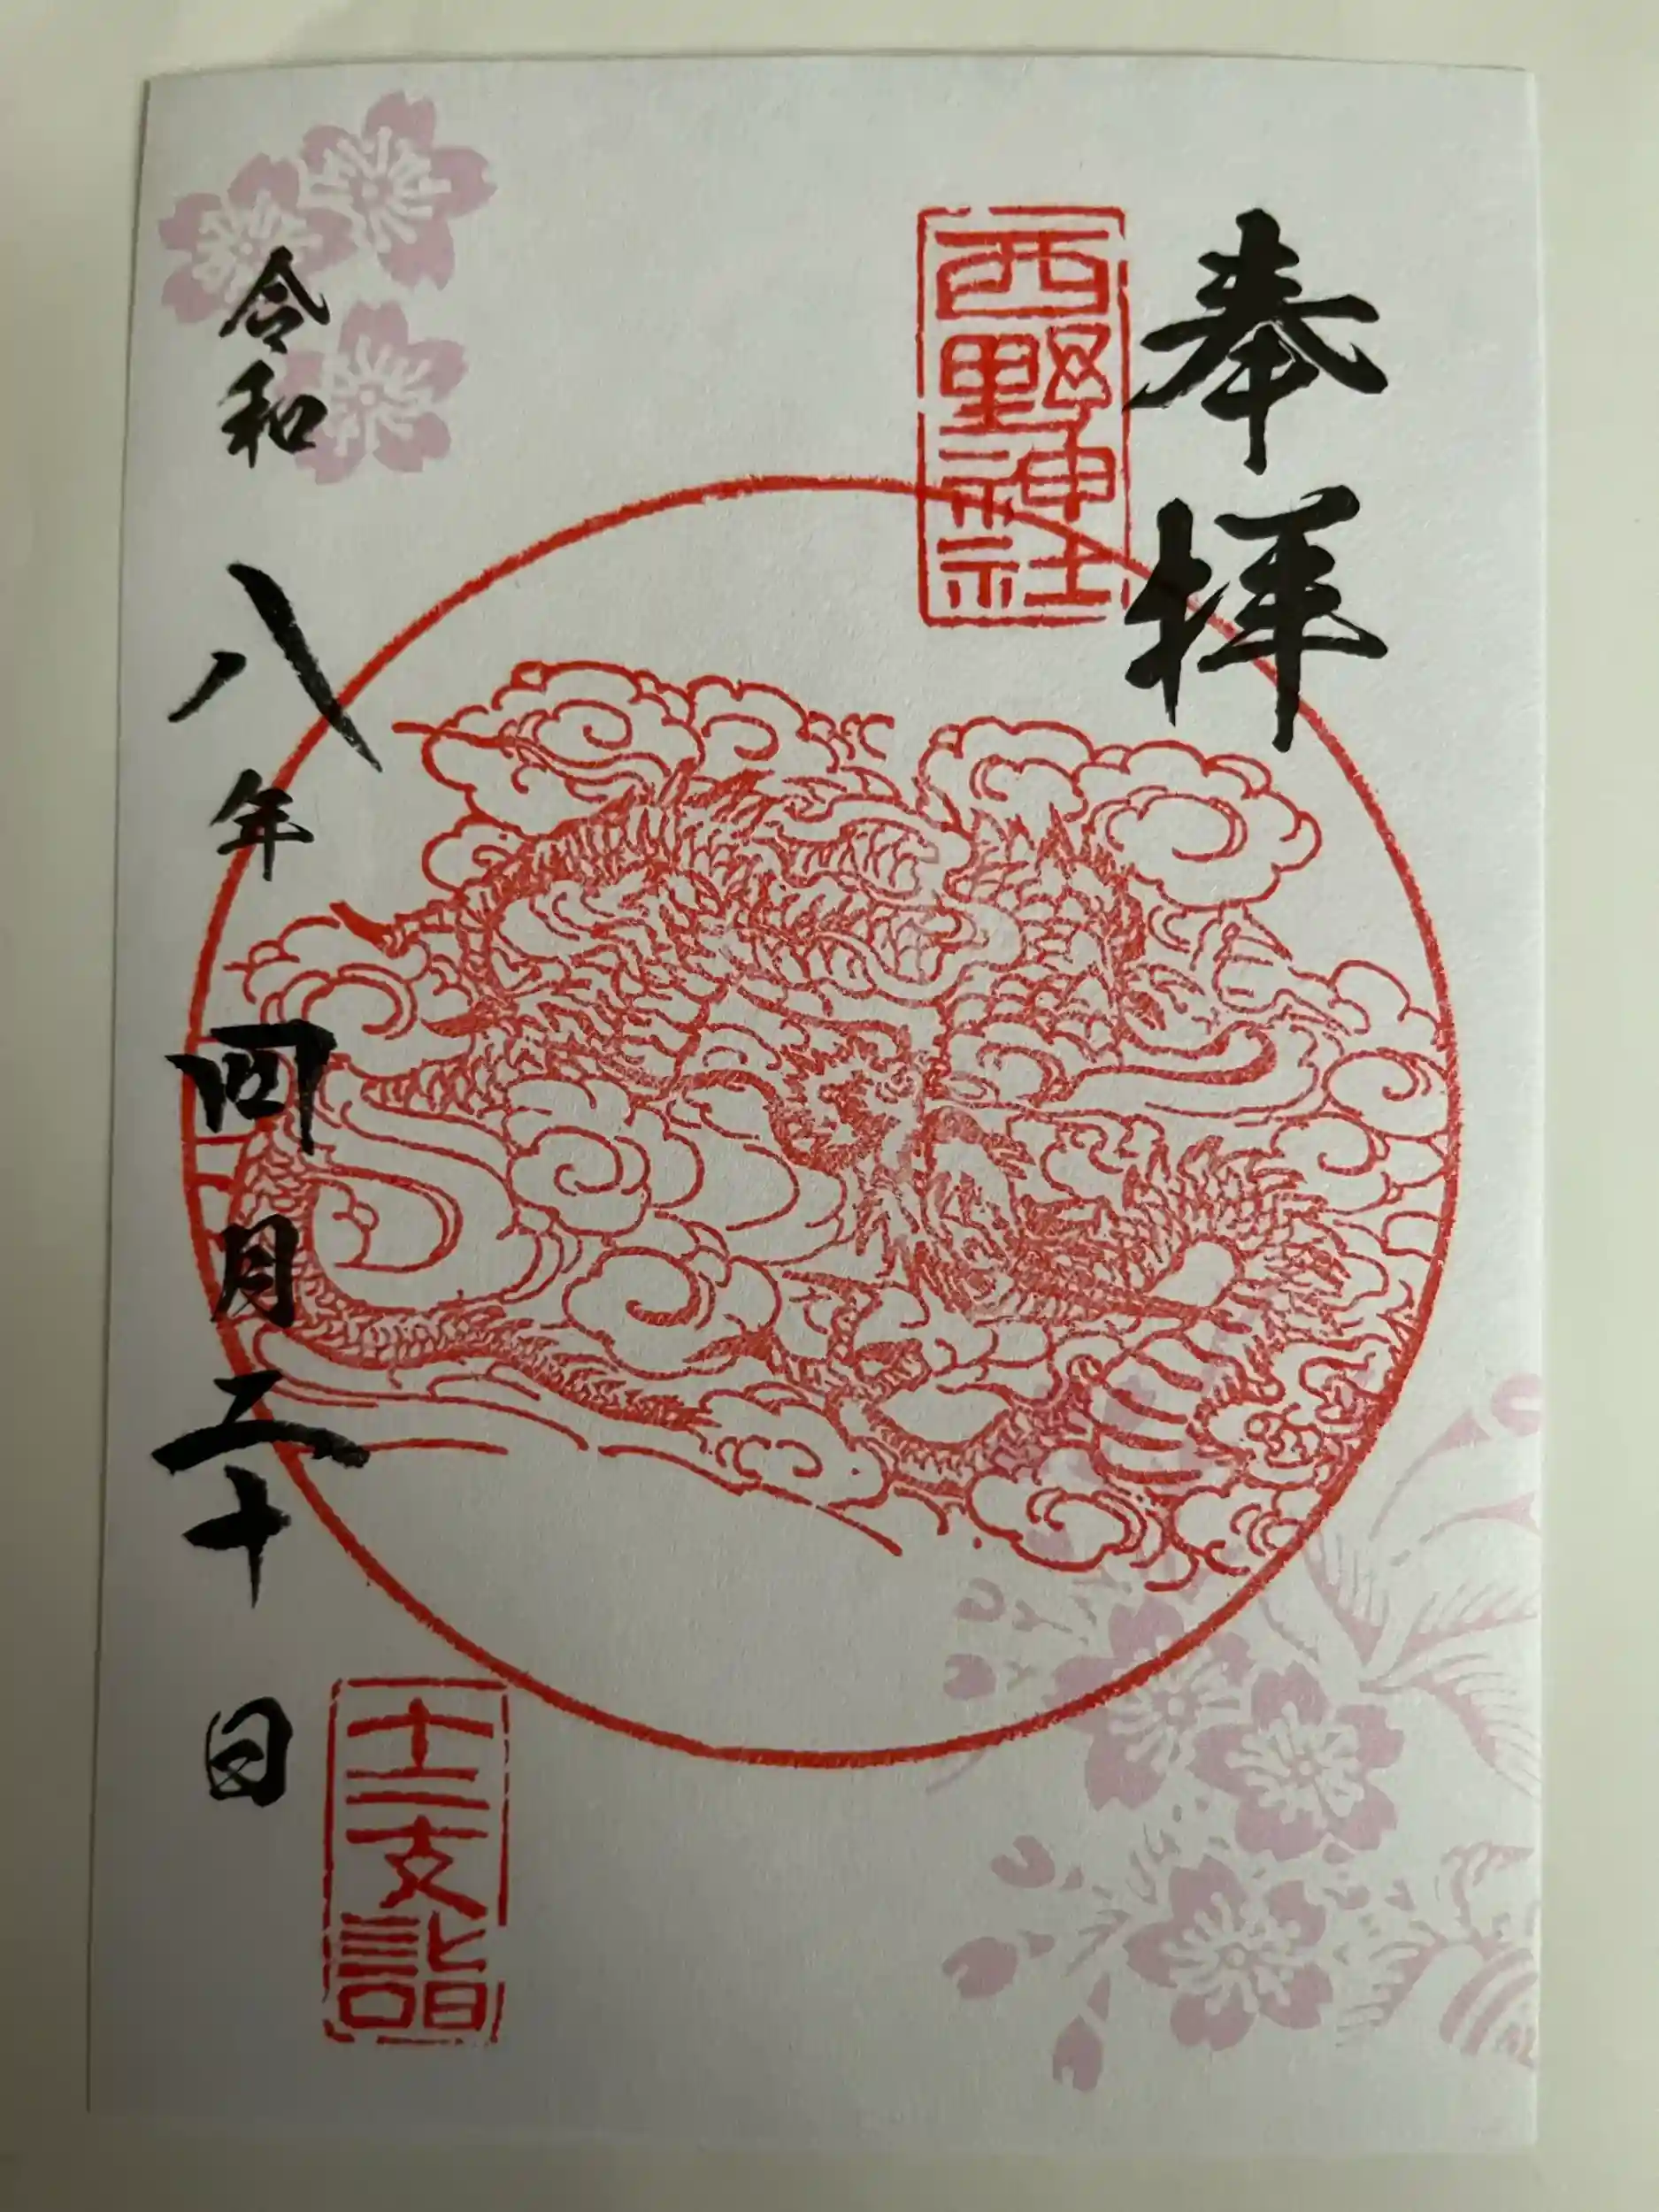 奉拝
西野神社
十二支詣
令和八年四月二十日